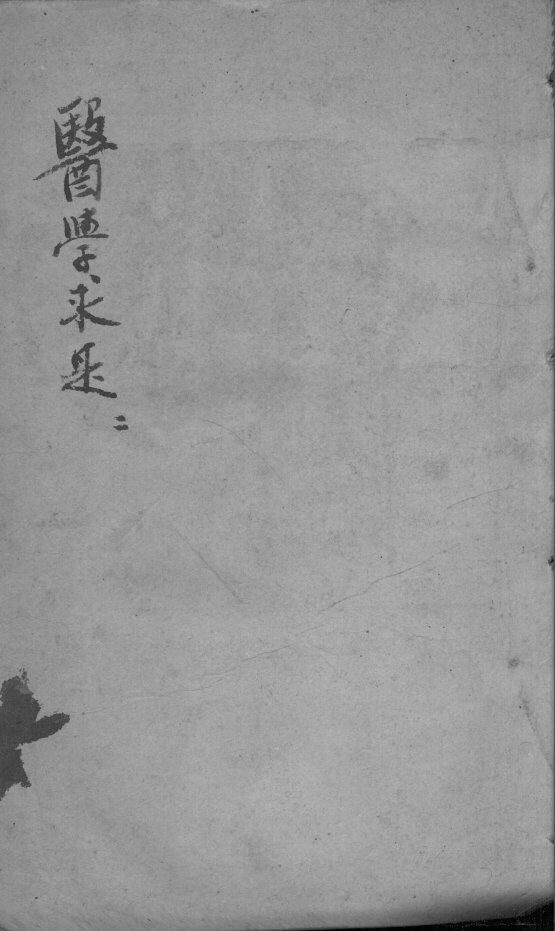 醫學求是 二